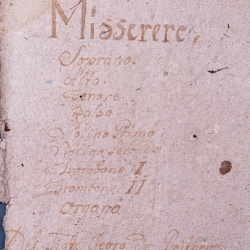 Misserere,
Soprano.
Alto.
Tenore.
Basso
Violino Primo
Violino Secondo
Trombone I
Trombone II
Organo
Del Sigr